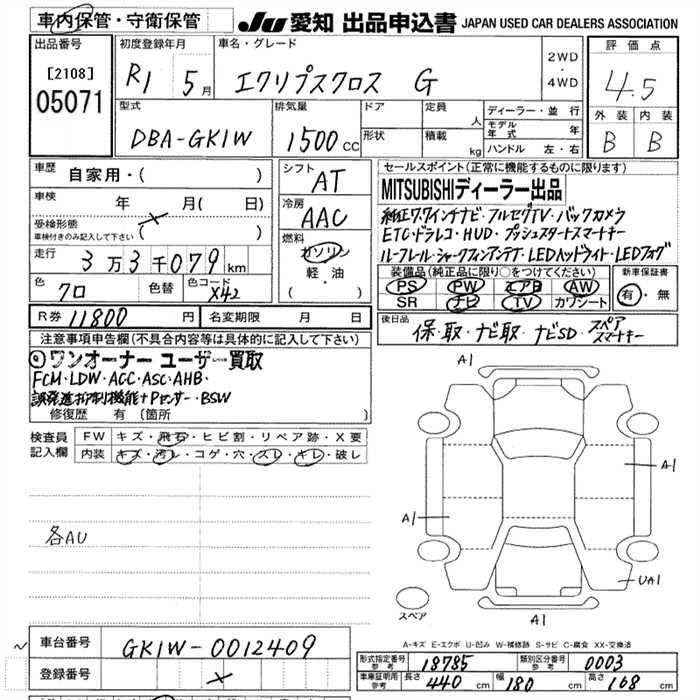 車内保管・守衛保管
JU 愛知 出品申込書 JAPAN USED CAR DEALERS ASSOCIATION
出品番号
[2108]
05071
初度登録年月
R1 5月
車名・グレード
エクリプスクロス G
2WD
・
4WD
評価点
4.5
外装 内装
B B
型式
DBA-GK1W
排気量
1500cc
ドア
形状
定員 人
積載 kg
ディーラー・並行
モデル年式 年
ハンドル 左・右
車歴
自家用・( )
車検 年 月( 日)
受検形態
車検付きのみ記入して下さい ( )
走行
3万3千079km
色
クロ
色替
色コード
X42
シフト
AT
冷房
AAC
燃料
ガソリン
軽・油
( )
セールスポイント(正常に機能するものに限ります)
MITSUBISHIディーラー出品
純正7.7インチナビ・フルセグTV・バックカメラ
ETC・ドラレコ・HUD・プッシュスタートスマートキー
ルーフレール・シャークフィンアンテナ・LEDヘッドライト・LEDフォグ
装備品(純正品に限り○をつけてください)
PS PW エアB AW
SR ナビ TV カワシート
新車保証書
有・無
R券 11800 円
名変期限 月 日
後日品
保・取・ナビ取・ナビSD・スペアスマートキー
注意事項申告欄(不具合内容等は具体的に記入して下さい)
◎ワンオーナー ユーザー買取
FCM・LDW・ACC・ASC・AHB・
誤発進抑制機能+Pセンサー・BSW
修復歴 有 〔箇所 〕
検査員記入欄
FW キズ・飛石・ヒビ割・リペア跡・X要
内装 キズ・汚レ・コゲ・穴・スレ・キレ・破レ
各AU
A1
A1
A1
UA1
A1
スペア
A-キズ E-エクボ U-凹み W-補修跡 S-サビ C-腐食 XX-交換済
車台番号
GK1W-0012409
登録番号
形式指定番号 参考 18785
類別区分番号 参考 0003
車庫証明用 参考 長さ 440 cm 幅 180 cm 高さ 168 cm